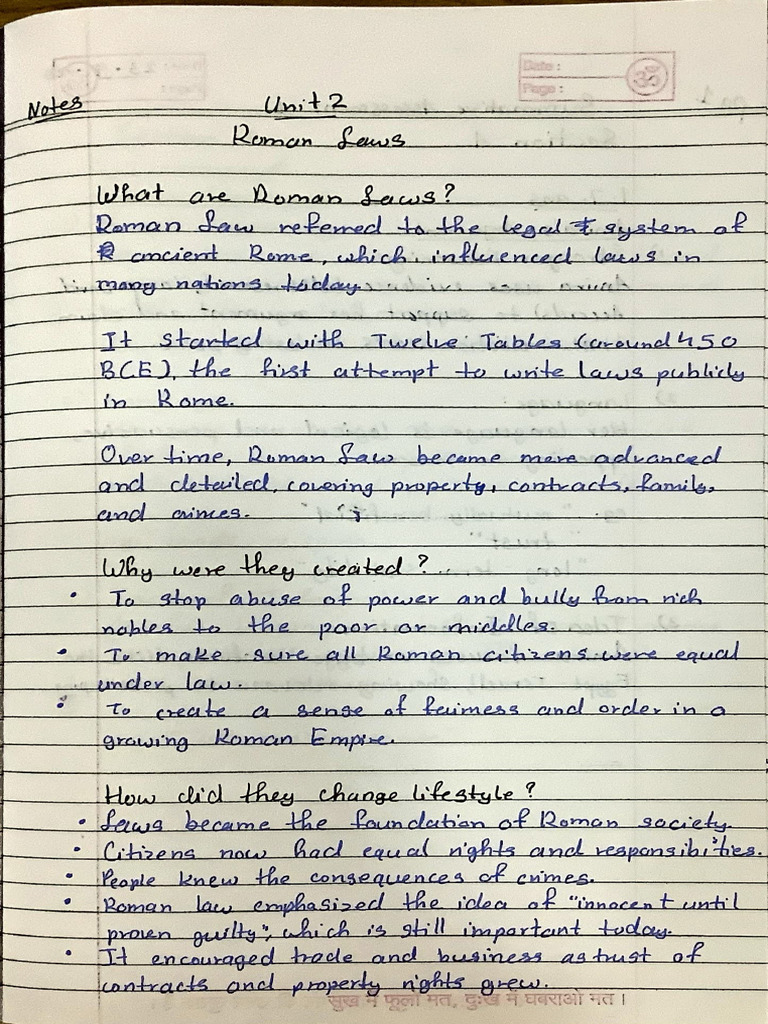 Date :
Page :
ॐ
Notes
Unit 2
Roman Laws
What are Roman Laws?
Roman Law referred to the legal system of
ancient Rome, which influenced laws in
many nations today.
It started with Twelve Tables (around 450
BCE), the first attempt to write laws publicly
in Rome.
Over time, Roman Law became more advanced
and detailed, covering property, contracts, family,
and crimes.
Why were they created?
• To stop abuse of power and bully from rich
nobles to the poor or middles.
• To make sure all Roman citizens were equal
under law.
• To create a sense of fairness and order in a
growing Roman Empire.
How did they change lifestyle?
• Laws became the foundation of Roman society.
• Citizens now had equal rights and responsibities.
• People knew the consequences of crimes.
• Roman law emphasized the idea of "innocent until
proven guilty", which is still important today.
• It encouraged trade and business as trust of
contracts and property rights grew.
सुख में फूलो मत, दुःख में घबराओ मत ।